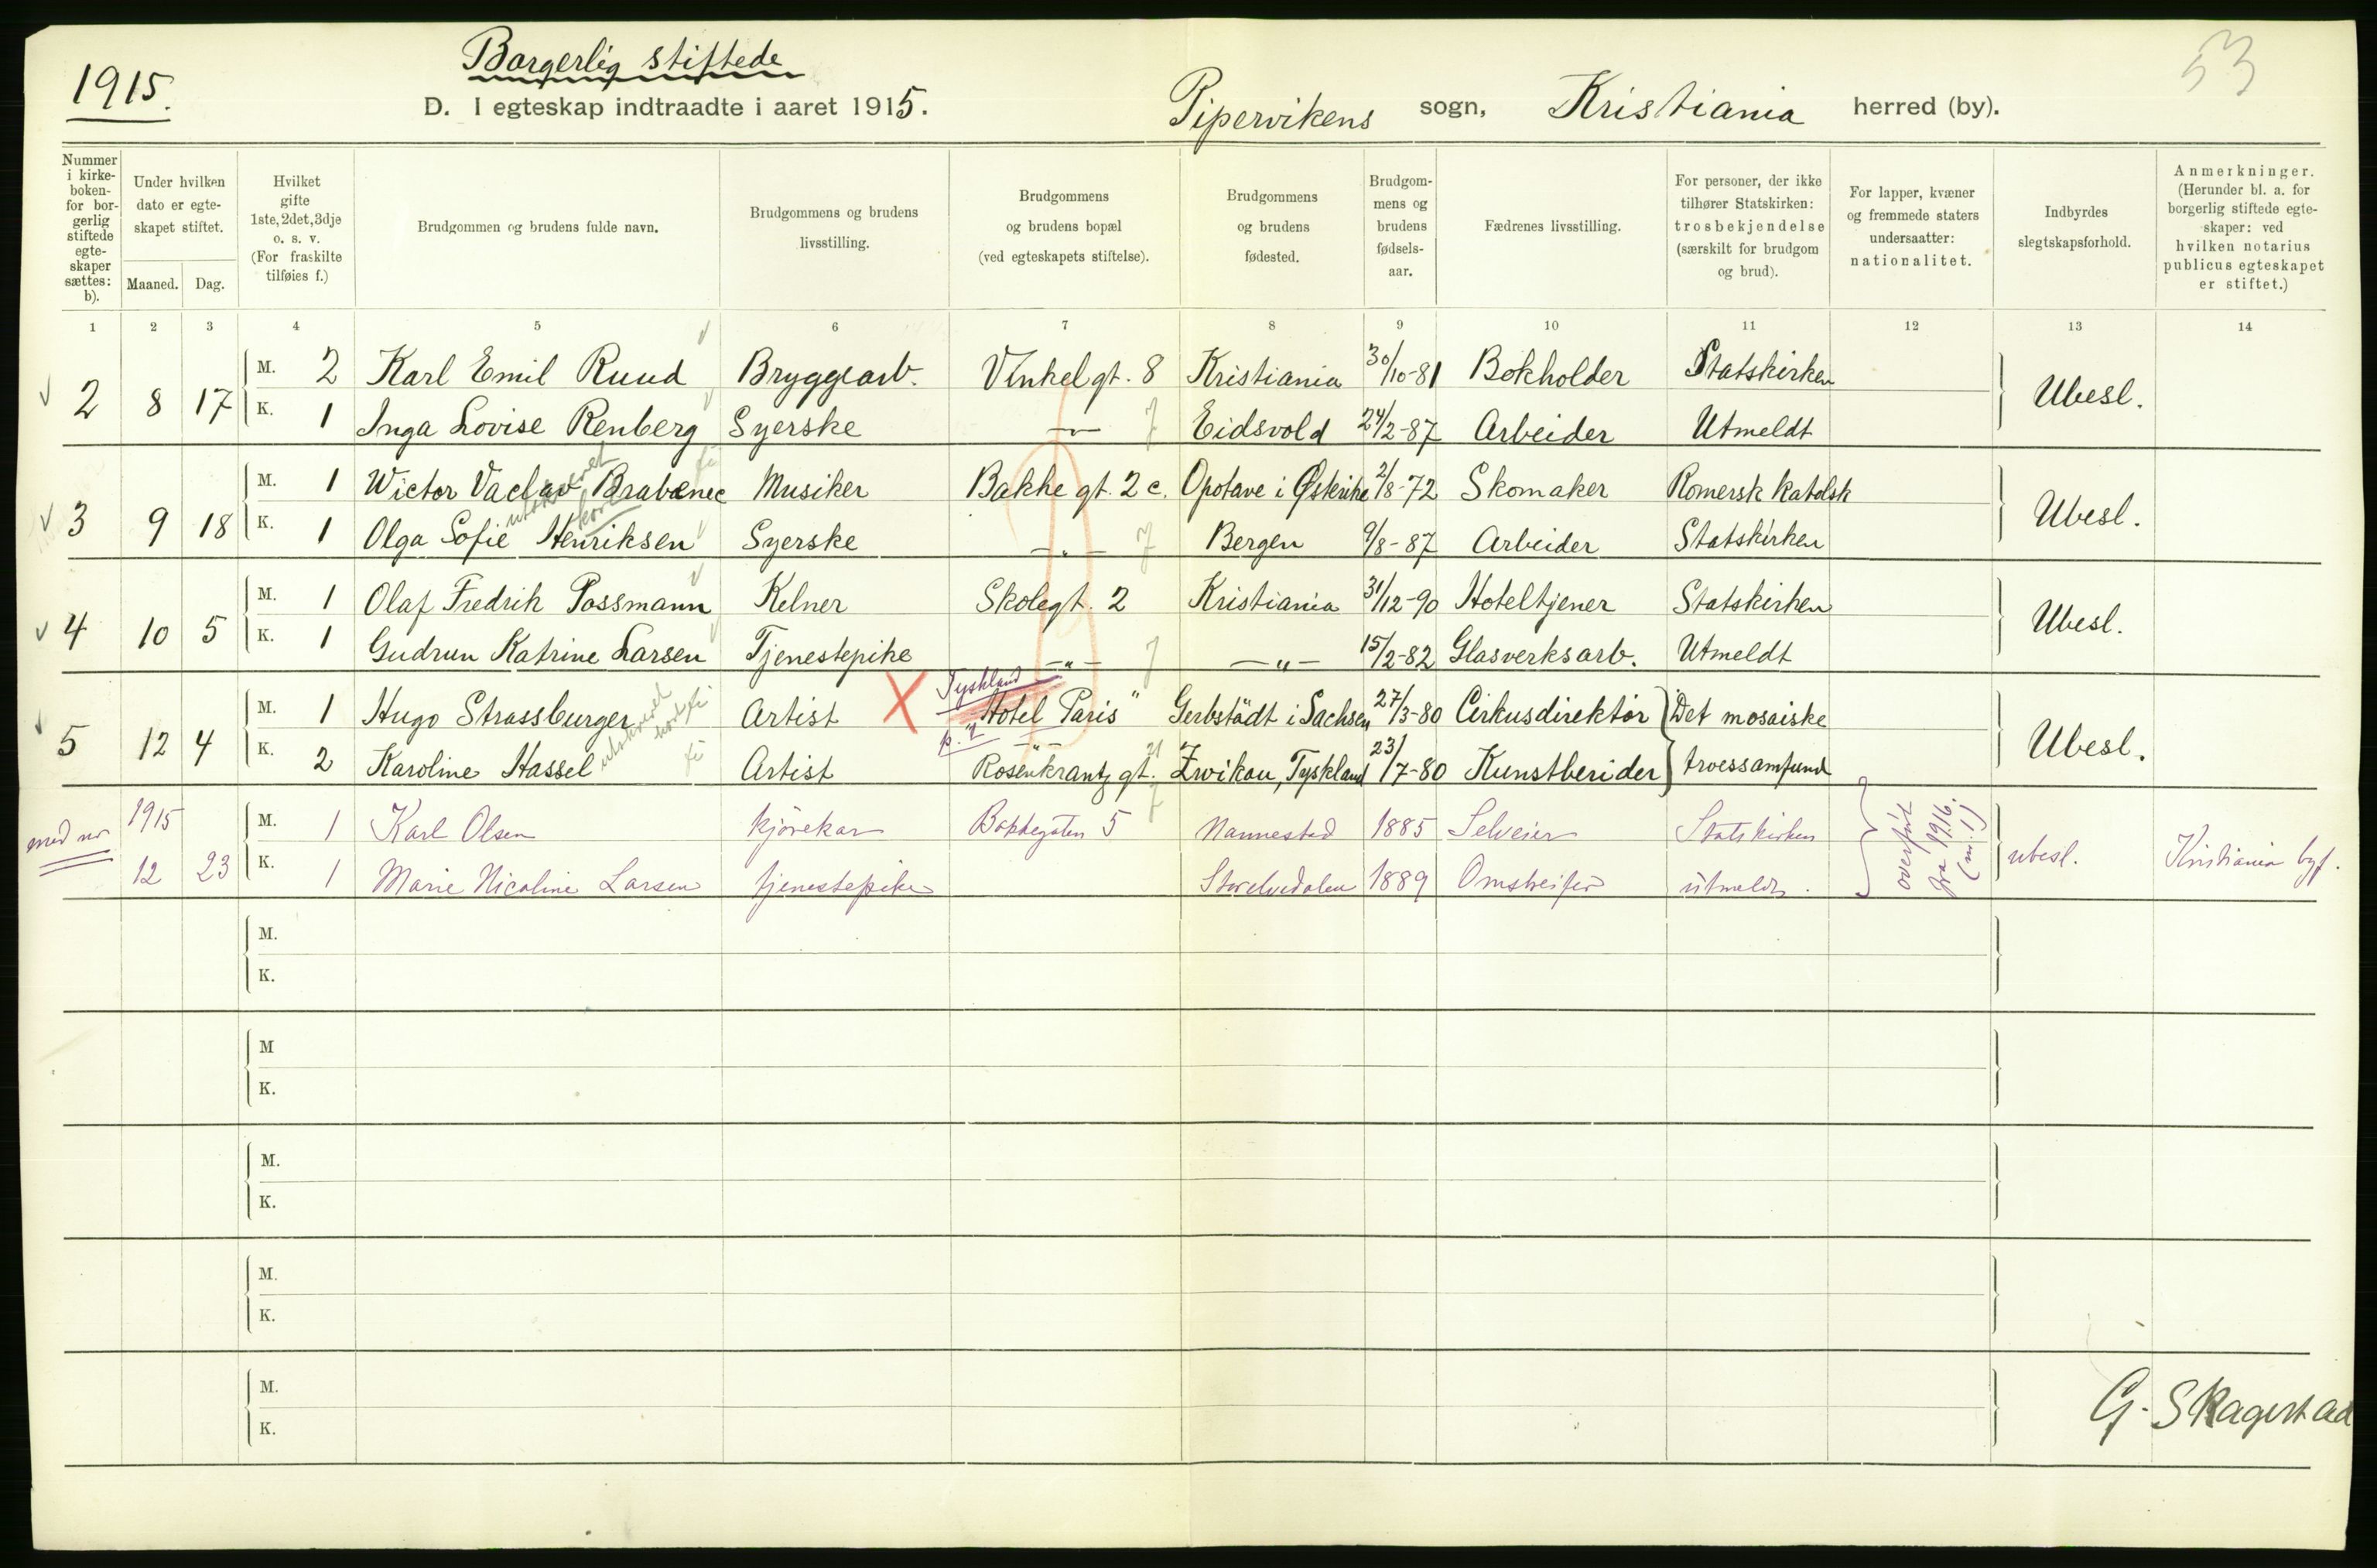 1915.
Borgerlig stiftede
53
D. I egteskap indtraadte i aaret 1915.
Pipervikens sogn, Kristiania herred (by).
Nummer i kirke-boken- for bor-gerlig stiftede egte-skaper sættes: b).
Under hvilken dato er egte-skapet stiftet.
Maaned. Dag.
Hvilket gifte 1ste, 2det, 3dje o. s. v. (For fraskilte tilføies f.)
Brudgommen og brudens fulde navn.
Brudgommens og brudens livsstilling.
Brudgommens og brudens bopæl (ved egteskapets stiftelse).
Brudgommens og brudens fødested.
Brudgom-mens og brudens fødsels-aar.
Fædrenes livsstilling.
For personer, der ikke tilhører Statskirken: trosbekjendelse (særskilt for brudgom og brud).
For lapper, kvæner og fremmede staters undersaatter: nationalitet.
Indbyrdes slegtskapsforhold.
Anmerkninger. (Herunder bl. a. for borgerlig stiftede egte-skaper: ved hvilken notarius publicus egteskapet er stiftet.)
1 2 3 4 5 6 7 8 9 10 11 12 13 14
2 8 17 M. 2 Karl Emil Ruud Bryggearb. Vinkelgt. 8 Kristiania 30/10-81 Bokholder Statskirken Ubesl.
K. 1 Inga Lovise Renberg Syerske —„— Eidsvold 24/2-87 Arbeider Utmeldt
3 9 18 M. 1 Wictor Vaclav Brabenec Musiker Bakke gt. 2 c. Opotave i Østerike 2/8-72 Skomaker Romersk katolsk Ubesl.
utskrevet kort
K. 1 Olga Sofie Henriksen Syerske —„— Bergen 9/8-87 Arbeider Statskirken
4 10 5 M. 1 Olaf Fredrik Possmann Kelner Skolegt. 2 Kristiania 31/12-90 Hoteltjener Statskirken Ubesl.
K. 1 Gudrun Katrine Larsen Tjenestepike —„— —„— 15/2-82 Glasverksarb. Utmeldt
Tyskland
5 12 4 M. 1 Hugo Strassburger Artist X "Hotel Paris" Gerbstädt i Sachsen 27/3-80 Cirkusdirektør Det mosaiske Ubesl.
utskrevet kort
K. 2 Karoline Hassel Artist Rosenkrantz gt. Zwikau, Tyskland 23/7-80 Kunstberider troessamfund
med nr 1915 M. 1 Karl Olsen kjørekar Bakkegaten 5 Nannestad 1885 Selveier Statskirken overført fra 1916. (nr. 1) ubesl. Kristiania byf.
12 23 K. 1 Marie Nicoline Larsen tjenestepike Storelvedalen 1889 Omstreifer utmeldt.
M.
K.
M
K.
M.
K.
M.
K.
M.
K.
G. Skagestad